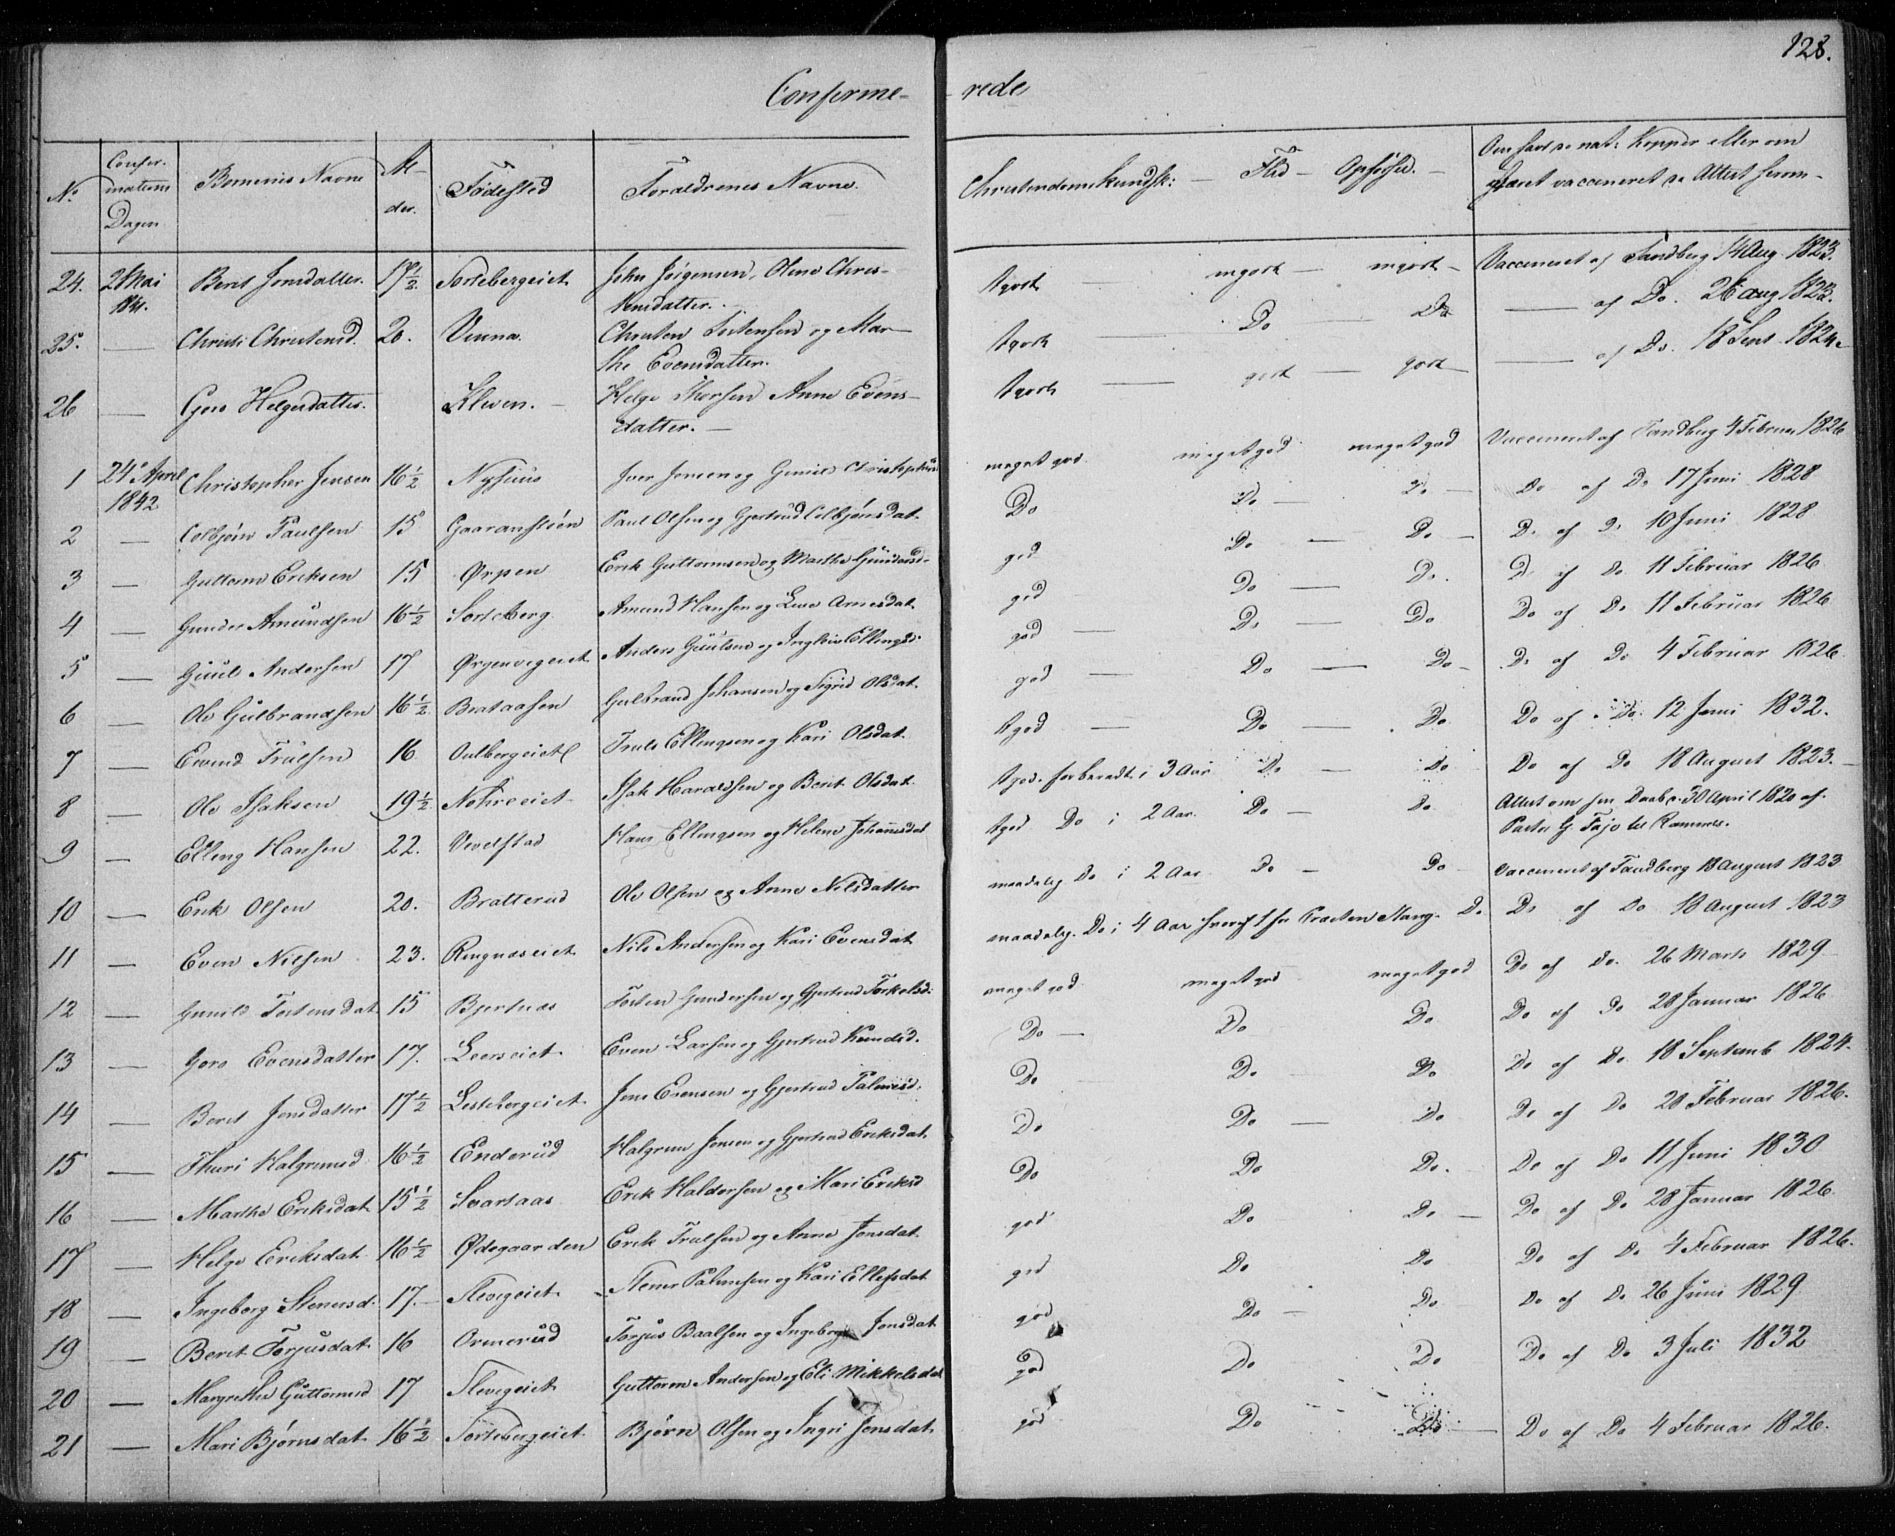 128.
Conferme- rede
No Confirmations Dagen Børnenes Navne Alder. Fødested Forældrenes Navne. Christendoms Kundsk: - Flid - Opførsel. - Om havt de nat: Kopper eller om
været vaccineret se Attest herom-
24. 2 Mai Berit Jonsdatter. 17½. Sortebergeiet John Jörgensen, Olene Chris- tgodt mgodt - mgodt - Vaccineret af Tandberg 14 Aug. 1823.
1841. tensdatter.
25. — Christi Christensd. 20. Vinna. Christen Tostensen og Mar- tgodt Do Do — af Do. 26 Aug 1823.
the Evensdatter.
26 — Goro Helgesdatter. Kleven. - Helge Thorsen Anne Evens- tgodt — godt — godt — af Do. 18 Sept. 1824.
datter. —
1 24de April Christopher Jensen 16½ Nyhuus Iver Jonsen og Gunild Christophersd meget god. meget god meget god Vaccineret af Tandberg 4 Februar 1826
1842
2 — Colbjørn Paulsen 15 Gaaranstøen Paul Olsen og Gjertrud Colbjørnsdat. Do Do — Do — Do af Do 17 Juni 1828
3 — Guttorm Eriksen 15 Ørpen Erik Guttormsen og Marthe Gundersd. god Do — Do — Do af Do 10 Juni 1828
4 — Gunder Amundsen 16½ Sorteberg Amund Hansen og Live Arnesdat. god Do — Do. Do af Do 11 Februar 1826
5 — Guul Andersen 17 Ørpenvegeiet Anders Guulsen og Ingleiv Ellingsd. god — Do — Do Do af Do 11 Februar 1826
6 — Ole Gulbrandsen 16½ Brataasen Gulbrand Johansen og Sigrid Olsdat. god — Do — Do - Do af Do 4 Februar 1826
7 — Evend Trulsen 16 Oulbergeiet Truls Ellingsen og Kari Olsdat. tgod — Do — Do Do af Do. 12 Juni 1832.
8 — Ole Isaksen 19½ Nohreeiet Isak Haraldsen og Berit Olsdat. tgod. forberedt i 3 Aar Do — Do Do af Do 18 August 1823.
9 — Elling Hansen 22. Vevelstad Hans Ellingsen og Helene Johannsdat tgod Do i 2 Aar. Do — Do Attest om sin Daab c: 30 April 1820 af.
10 — Erik Olsen 20. Bratterud Ole Olsen og Anne Nilsdatter maadelig Do i 2 Aar. Do — Do vaccineret af Tandberg 18 August 1823
11 — Even Nilsen 23. Ringnæseiet Nils Andersen og Kari Evensdat maadelig. Do i 4 Aar Do. Do af Do 18 August 1823
12 — Gunild Tostensdat 15 Bjertnæs Tosten Gundersen og Gjertrud Torkelsd. meget god. meget god meget god Do af Do. 26 Marts 1829
13 — Goro Evensdatter 17. Leerseiet Even Larsen og Gjertrud Knudsd. Do — Do Do Do af Do 28 Januar 1826
14 — Berit Jonsdatter 17½ Lestebergeiet Jens Evensen og Gjertrud Palmesd. Do Do Do Do af Do. 18 Septemb 1824.
15 — Thuri Halgrimsd 16½ Enderud Halgrim Jensen og Gjertrud Eriksdat. Do Do — Do Do af Do 28 Februar 1826.
16 — Marthe Eriksdat 15½ Svartaas Erik Haldorsen og Mari Eriksd Do Do Do. Do af Do 11 Juni 1830
17 — Helge Eriksdat 16½ Ødegaarden Erik Trulsen og Anne Jonsdat. god Do Do — Do af Do 28 Januar 1826.
18 — Ingeborg Stenersd. 17. — Slevigeiet Stener Palmesen og Kari Ellefsdat god Do Do Do af Do 4 Februar 1826.
19 — Berit Torjusdat 16 Ormerud Torjus Baalsen og Ingeborg Jonsdat god Do — Do. Do af Do 26 Juni 1829
20 — Margrethe Guttormsd 17 Slevigeiet Guttorm Andersen og Eli Mikkelsdat god Do Do Do af Do 3 Juli 1832
21 — Mari Bjørnsdat 16½ Sortebergeiet Bjørn Olsen og Ingri Jonsdat. god Do Do — Do af Do 4 Februar 1826.